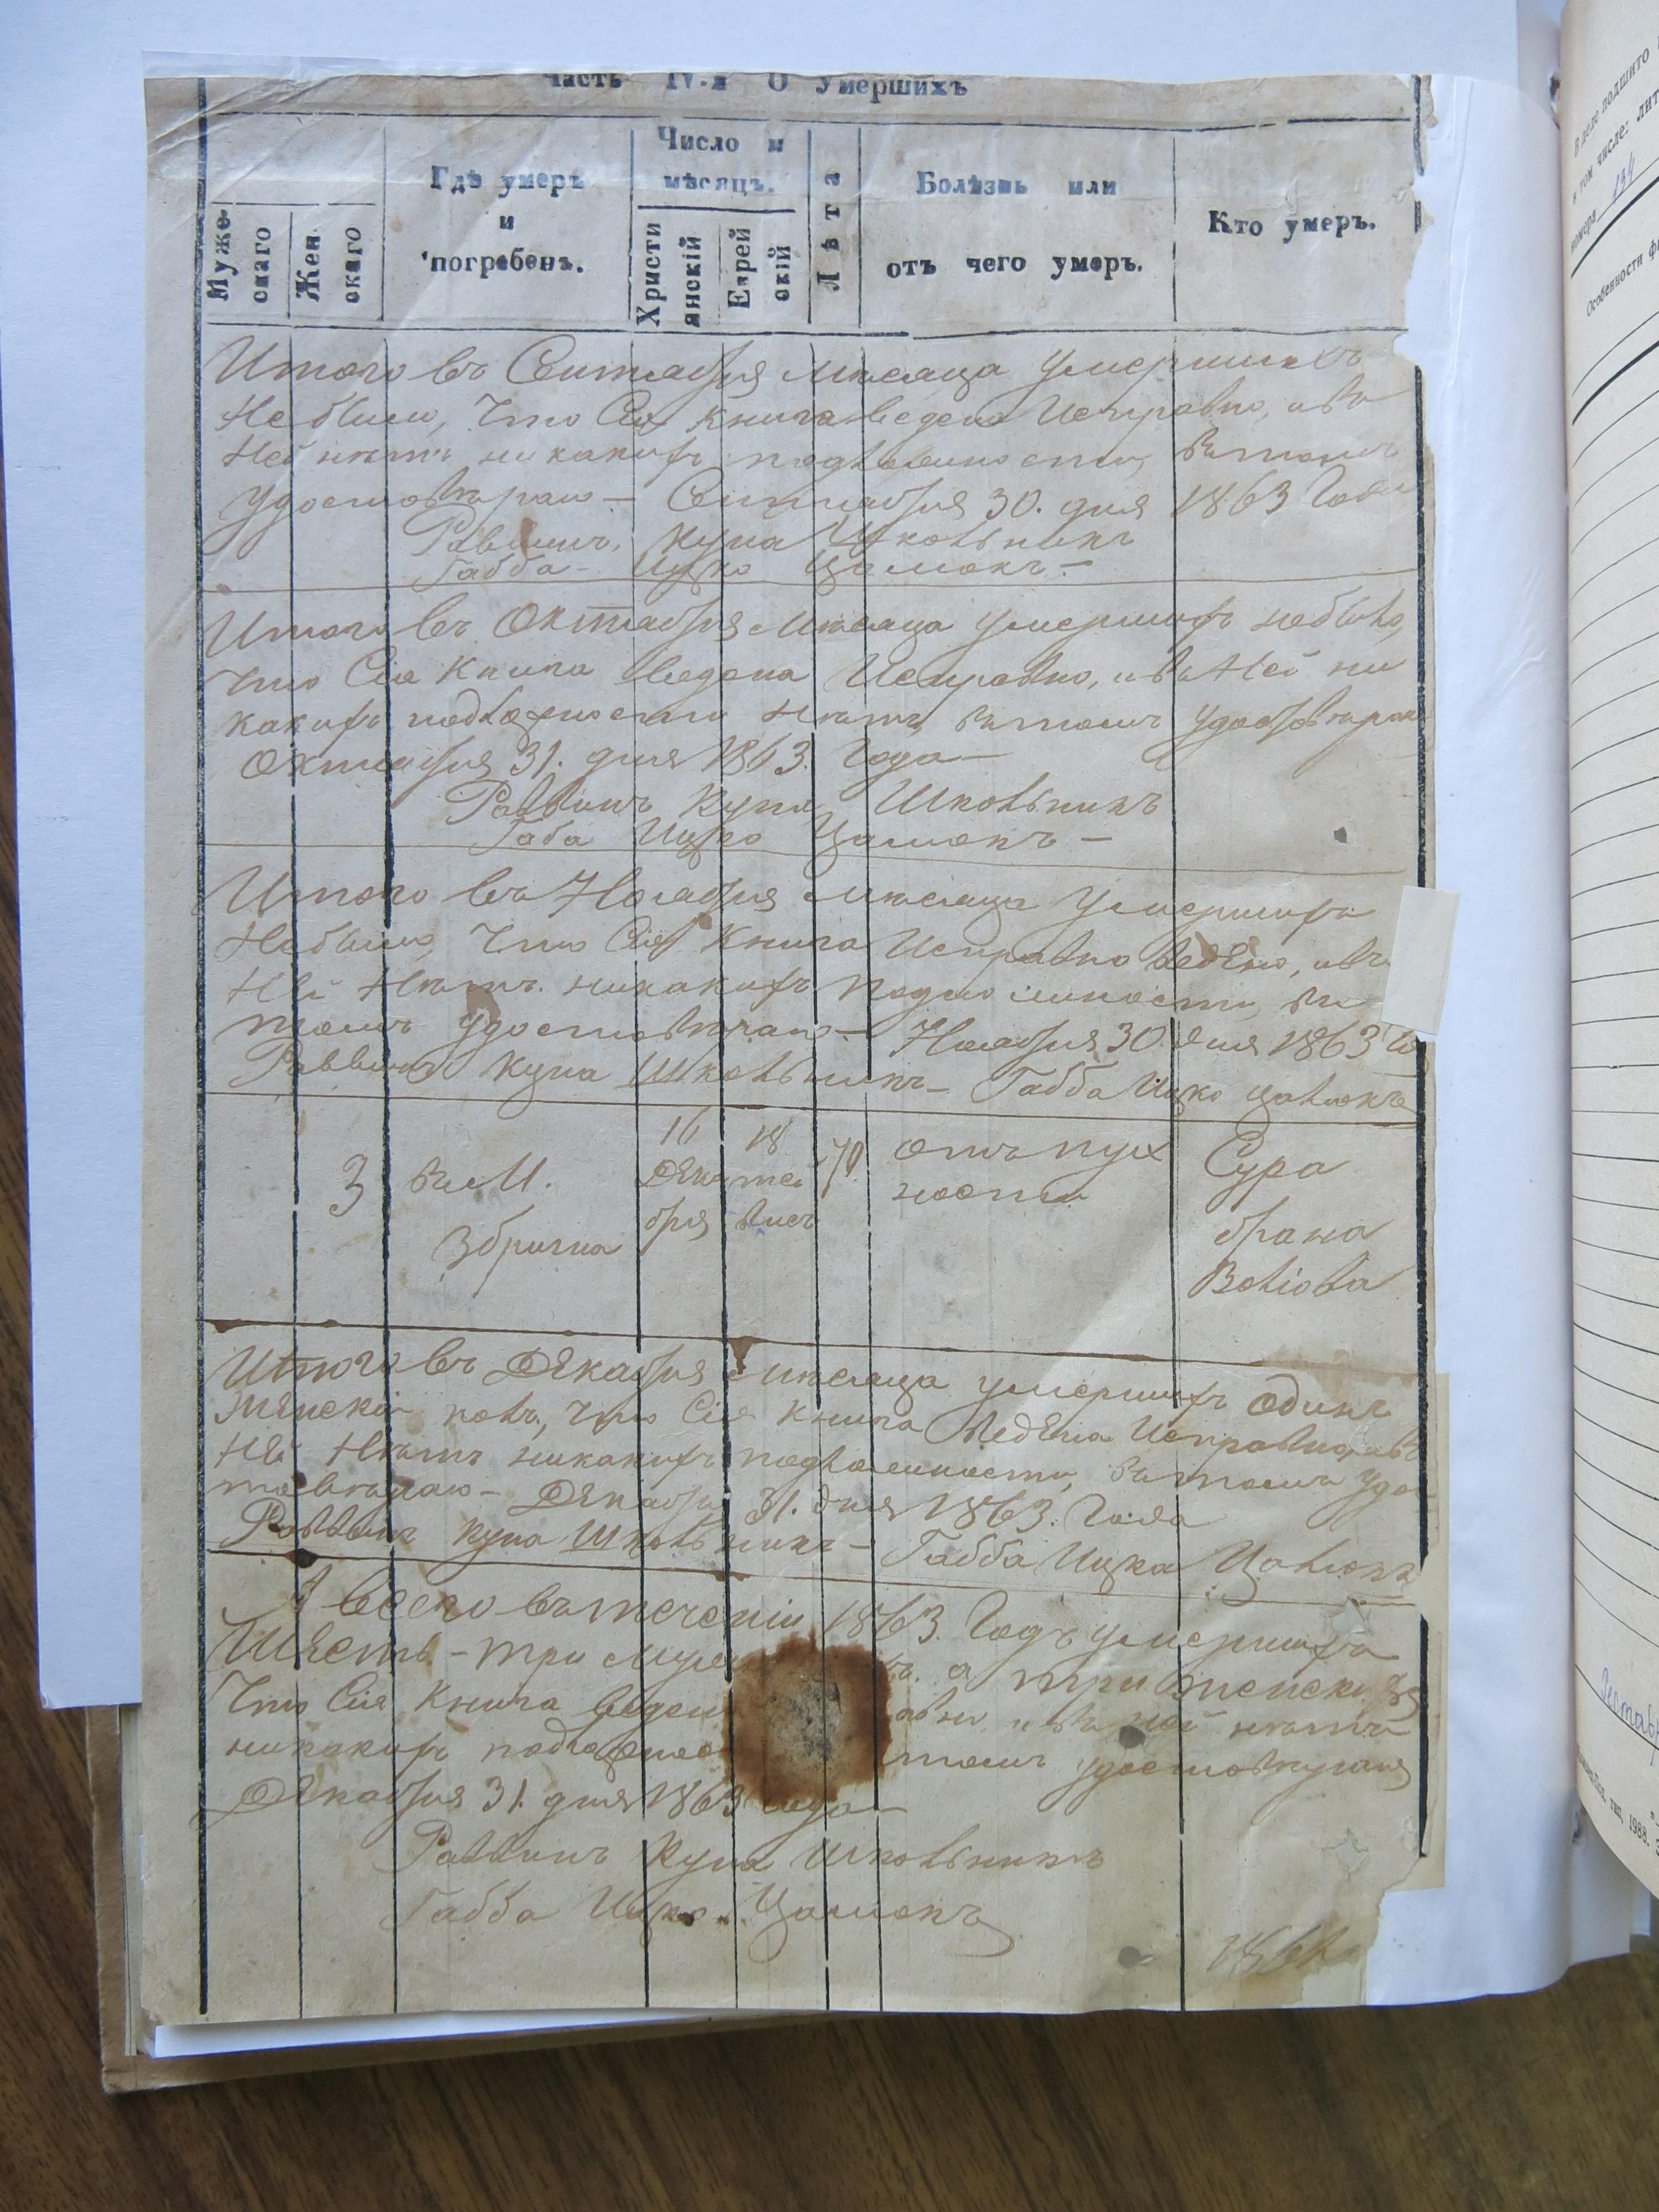 Часть IV-я О Умершихъ
Муже
скаго
Жен
скаго
Где умеръ
и
погребенъ.
Число и
мѣсяцъ.
Христи
янскій
Еврей
скій
Лѣта
Болѣзнь или
отъ чего умеръ.
Кто умеръ.
Итого въ Сентября мѣсяца умершихъ
Небыло, Что Сія книга ведена Исправно, ивъ
Ней нѣтъ никакихъ подложности, въ томъ
удостовѣраю – Сентября 30. дня 1863 Года
Раввинъ, Купа Школьникъ
Габба – Ицко Цалюкъ –
Итого въ Октября мѣсяца умершихъ небыло,
Что Сія Книга ведена Исправно, ивъ Ней ни
какихъ подложности нѣтъ, въ томъ удостовѣраю
Октября 31. дня 1863. Года –
Раввинъ Купа Школьникъ
Габа Ицко Цалюкъ –
Итого въ Ноября мѣсяца Умершихъ
Небыло, Что Сія Книга Исправно ведено, ивъ
Ней Нѣтъ никакихъ подложности, въ
томъ удостовѣраю – Ноября 30. дня 1863 Го
Раввинъ Купа Школьникъ – Габба Ицко Цалюкъ
3
въ М.
Збрыша
16
Декя
бря
18
тей
висъ
70.
отъ пух
ности
Сура
брана
Волiова
Итого въ Декабря мѣсяца умершихъ одинъ
женскій полъ, Что Сія книга ведена Исправно, ивъ
Ней Нѣтъ никакихъ подложности, въ томъ удос
товѣраю – Декабря 31. дня 1863. Года
Раввинъ Купа Школьникъ – Габба Ицка Цалюкъ
А всего въ теченіи 1863. Годъ умершихъ
Шесть – три муже ъ. а три женск
Что Сія Книга веден авно, ивъ ней нѣтъ
никакихъ подложнос томъ удостовѣраю
Декабря 31. дня 1863 года –
Раввинъ Купа Школьникъ
Габба Ицко Цалюкъ
В деле подшито
в том числе: лит
номера 134
Особенности ф
1988.